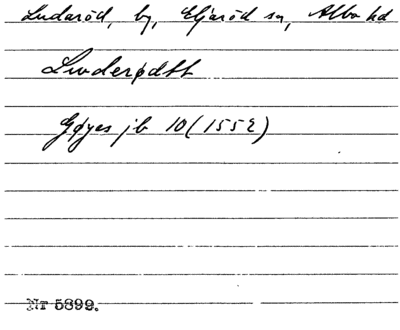 Ludaröd, by, Eljaröd sn, Albo hd
Linderødtt
Gøyes jb 10 (1552)
Nr 5899.